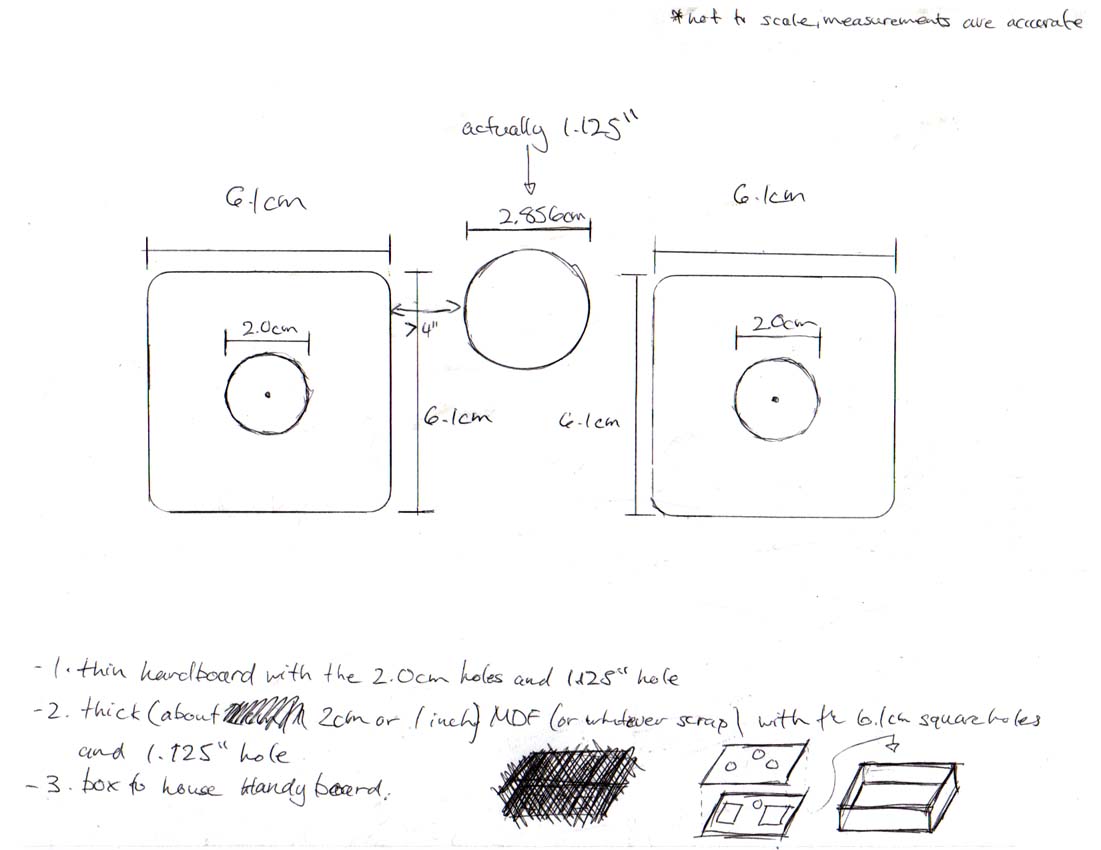 *not to scale, measurements are accurate
actually 1.125"
6.1cm
2.856cm
6.1cm
2.0cm
>4"
2.0cm
6.1cm
6.1cm
-1. thin hardboard with the 2.0cm holes and 1.125" hole
-2. thick (about 2cm or 1 inch) MDF (or whatever scrap) with the 6.1cm square holes
and 1.125" hole
-3. box to house Handyboard.